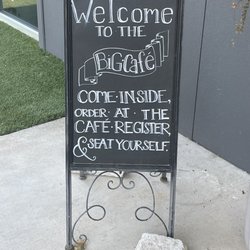 Welcome
TO THE
BIG CAFÉ
COME·INSIDE,
ORDER·AT·THE
CAFÉ·REGISTER,
& SEAT YOURSELF.